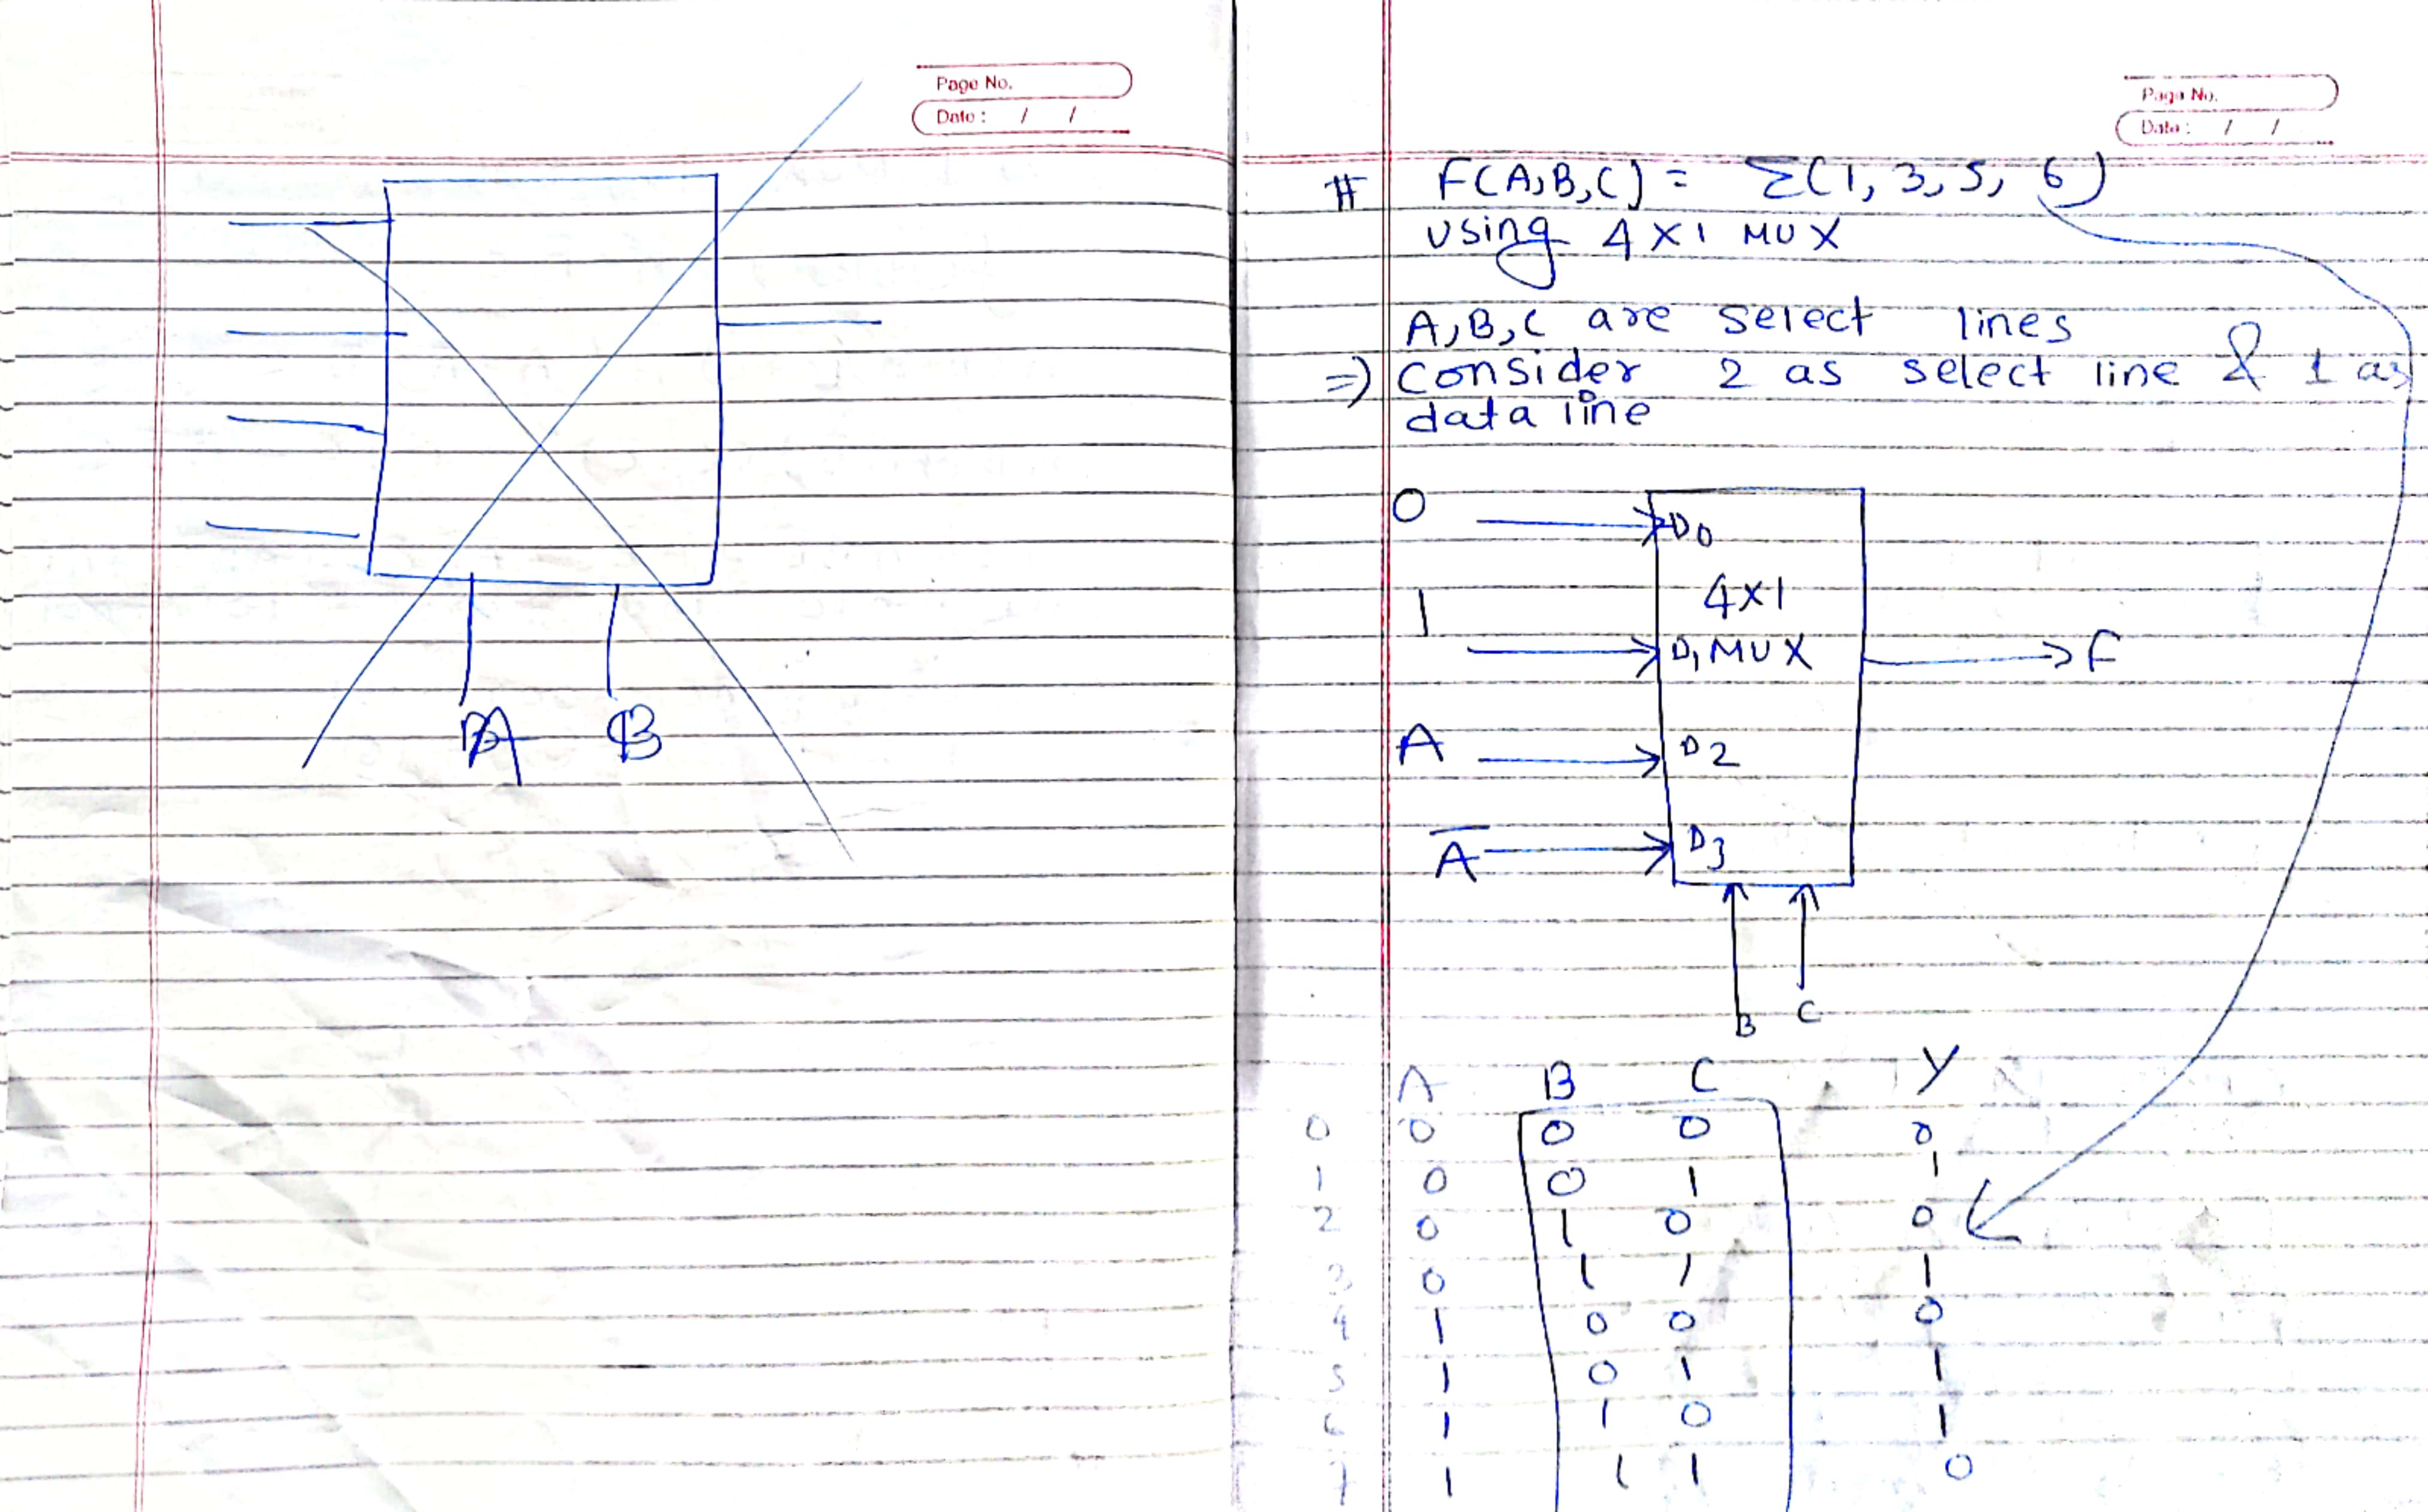 Page No.
Date : / /
A B
Page No.
Date : / /
# F(A,B,C) = Σ(1, 3, 5, 6)
using 4×1 MUX
A,B,C are select lines
⇒) Consider 2 as select line & 1 as
data line
0 D0
4×1
1 D1 MUX F
A D2
A̅ D3
B C
A B C Y
0 0 0 0 0
1 0 0 1 1
2 0 1 0 0
3 0 1 1 1
4 1 0 0 0
5 1 0 1 1
6 1 1 0 1
7 1 1 1 0